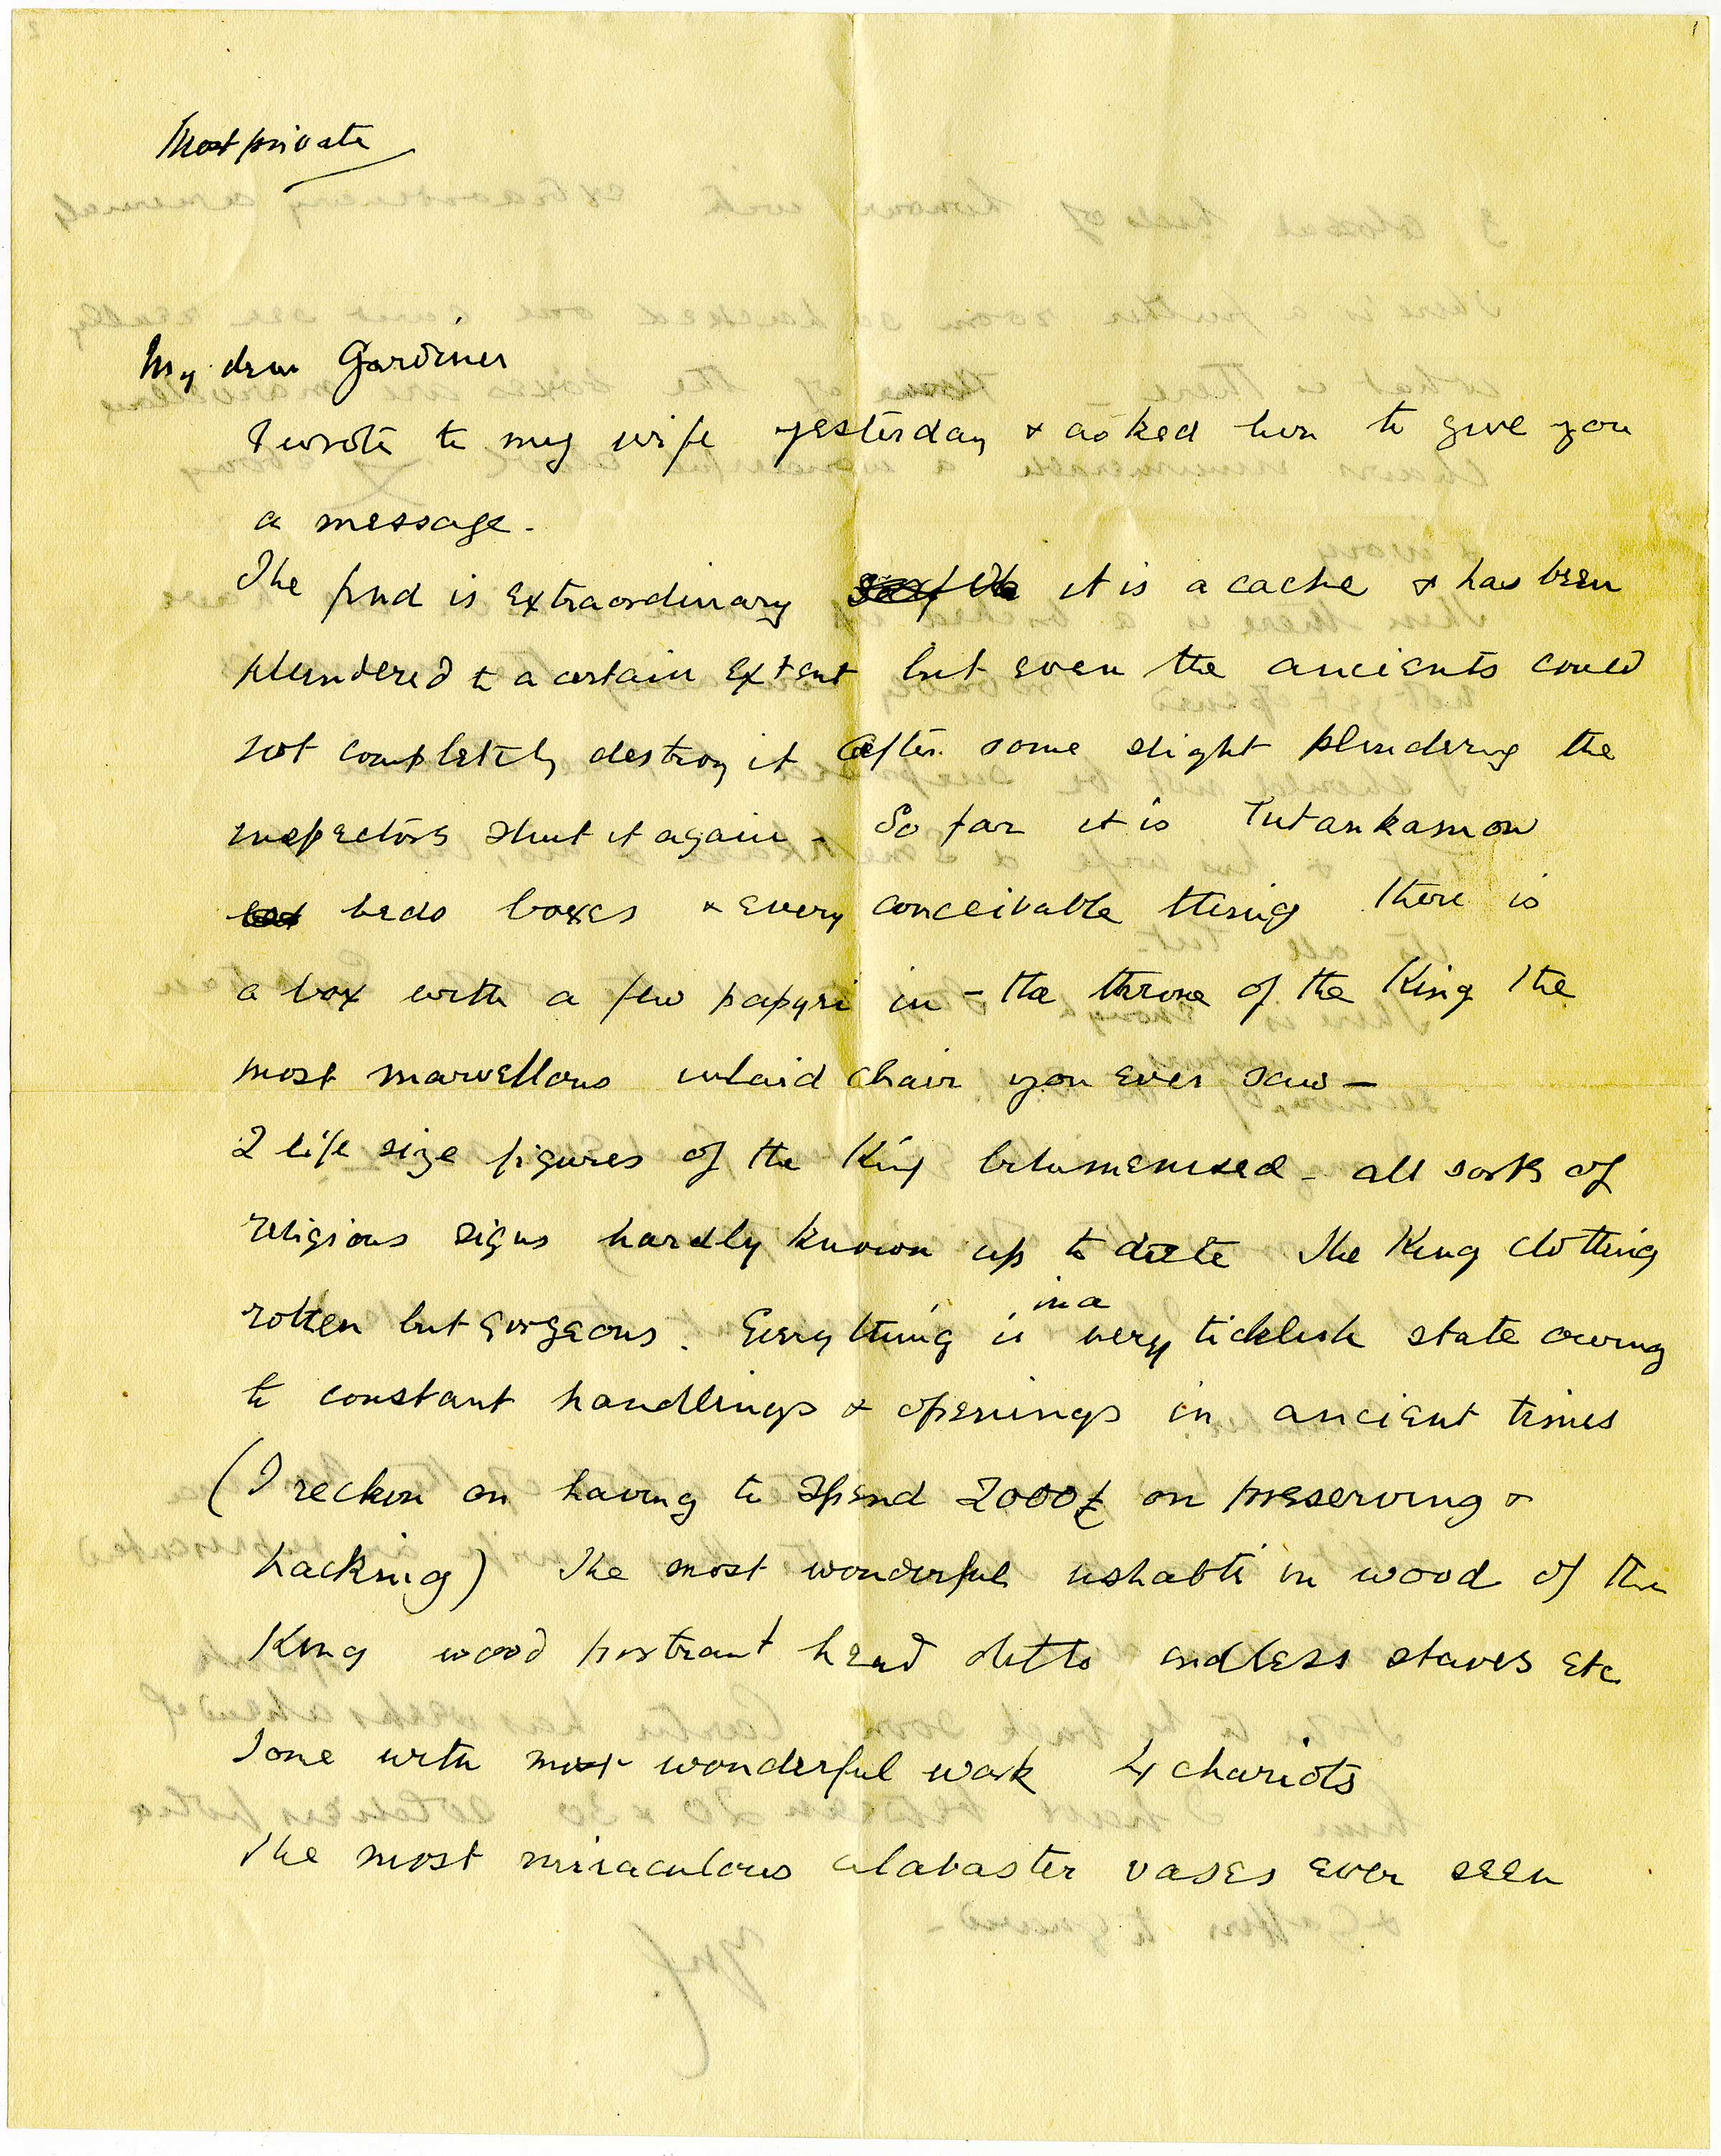 Most private
My dear Gardiner
I wrote to my wife yesterday & asked her to give you
a message.
The find is extraordinary it is a cache & has been
plundered to a certain extent but even the ancients could
not completely destroy it after some slight plundering the
inspectors shut it again - So far it is Tutankamon
beds boxes & every conceivable thing there is
a box with a few papyri in - the throne of the King the
most marvellous inlaid chair you ever saw -
2 life size figures of the King bitumenised - all sorts of
religious signs hardly known up to date The King clothing
rotten but gorgeous. Everything is in a very ticklish state owing
to constant handlings & openings in ancient times
(I reckon on having to spend 2000£ on preserving &
packing) The most wonderful ushabti in wood of the
King wood portrait head ditto endless staves etc
some with most wonderful work 4 chariots
The most miraculous alabaster vases ever seen